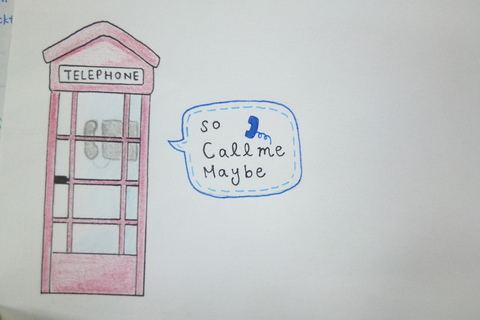 TELEPHONE
so
Call me
Maybe